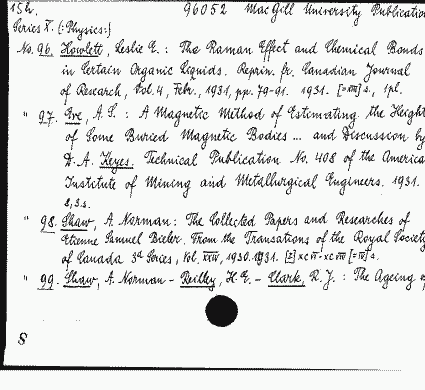 15h. 96052 MacGill University Publication
Series X. (:Physics:)
No. 96. Howlett, Leslie E. : The Raman Effect and Chemical Bonds
in Certain Organic Liquids. Reprin. fr. Canadian Journal
of Research, Vol. 4, Febr., 1931, pp. 79-91. 1931. s., 1pl.
" 97. Eve, A. S. : A Magnetic Method of Estimating the Height
of Some Buried Magnetic Bodies ... and Discussion by
D. A. Keyes. Technical Publication No. 408 of the America
Institute of Mining and Metallurgical Engineers. 1931.
8, 3 s.
" 98. Shaw, A. Norman : The Collected Papers and Researches of
Etienne Samuel Bieler. From the Transations of the Royal Society
of Canada 3d Series, Vol. XXIV, 1930. 1931. s.
" 99. Shaw, A. Norman - Reilley, H. E. - Clark, R. J. : The Ageing o
8